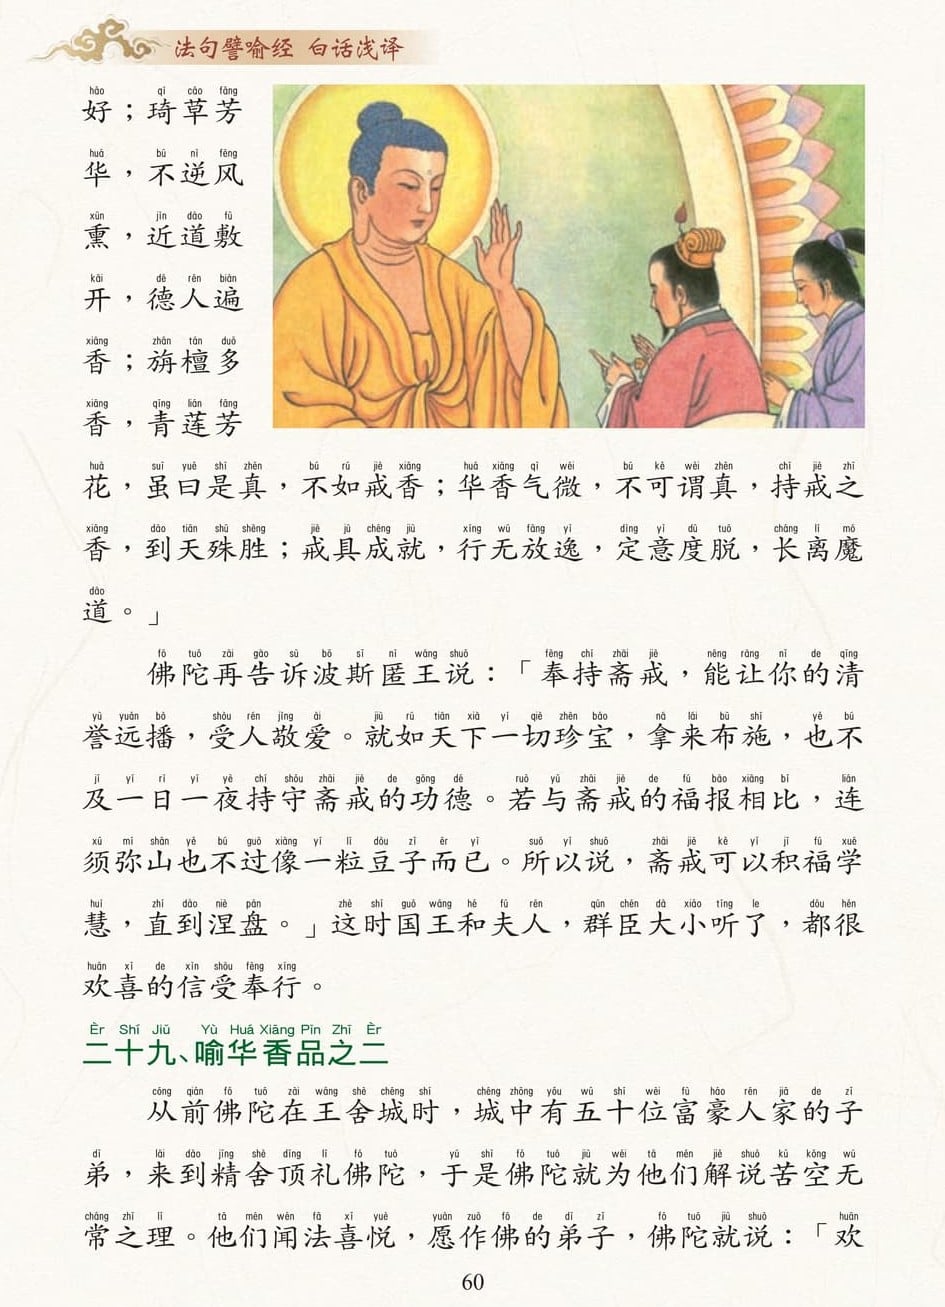 法句譬喻经 白话浅译
hǎo qí cǎo fāng
好；琦草芳
huá bù nì fēng
华，不逆风
xūn jìn dào fū
熏，近道敷
kāi dé rén biàn
开，德人遍
xiāng zhān tán duō
香；旃檀多
xiāng qīng lián fāng
香，青莲芳
huā suī yuē shì zhēn bù rú jiè xiāng huá xiāng qì wéi bù kě wèi zhēn chí jiè zhī
花，虽曰是真，不如戒香；华香气微，不可谓真，持戒之
xiāng dào tiān shū shèng jiè jù chéng jiù xíng wú fàng yì dìng yì dù tuō cháng lí mó
香，到天殊胜；戒具成就，行无放逸，定意度脱，长离魔
dào
道。」
fó tuó zài gào sù bō sī nì wáng shuō fèng chí zhāi jiè néng ràng nǐ de qīng
佛陀再告诉波斯匿王说：「奉持斋戒，能让你的清
yù yuǎn bō shòu rén jìng ài jiù rú tiān xià yí qiè zhēn bǎo ná lái bù shī yě bù
誉远播，受人敬爱。就如天下一切珍宝，拿来布施，也不
jí yí rì yí yè chí shǒu zhāi jiè de gōng dé ruò yǔ zhāi jiè de fú bào xiāng bǐ lián
及一日一夜持守斋戒的功德。若与斋戒的福报相比，连
xū mí shān yě bú guò xiàng yí lì dòu zǐ ér yǐ suǒ yǐ shuō zhāi jiè kě yǐ jī fú xué
须弥山也不过像一粒豆子而已。所以说，斋戒可以积福学
huì zhí dào niè pán zhè shí guó wáng hé fū rén qún chén dà xiǎo tīng le dōu hěn
慧，直到涅盘。」这时国王和夫人，群臣大小听了，都很
huān xǐ de xìn shòu fèng xíng
欢喜的信受奉行。
Èr Shí Jiǔ Yù Huá Xiāng Pǐn Zhī Èr
二十九、喻华香品之二
cóng qián fó tuó zài wáng shè chéng shí chéng zhōng yǒu wǔ shí wèi fù háo rén jiā de zǐ
从前佛陀在王舍城时，城中有五十位富豪人家的子
dì lái dào jīng shè dǐng lǐ fó tuó yú shì fó tuó jiù wèi tā men jiě shuō kǔ kōng wú
弟，来到精舍顶礼佛陀，于是佛陀就为他们解说苦空无
cháng zhī lǐ tā men wén fǎ xǐ yuè yuàn zuò fó de dì zǐ fó tuó jiù shuō huān
常之理。他们闻法喜悦，愿作佛的弟子，佛陀就说：「欢
60